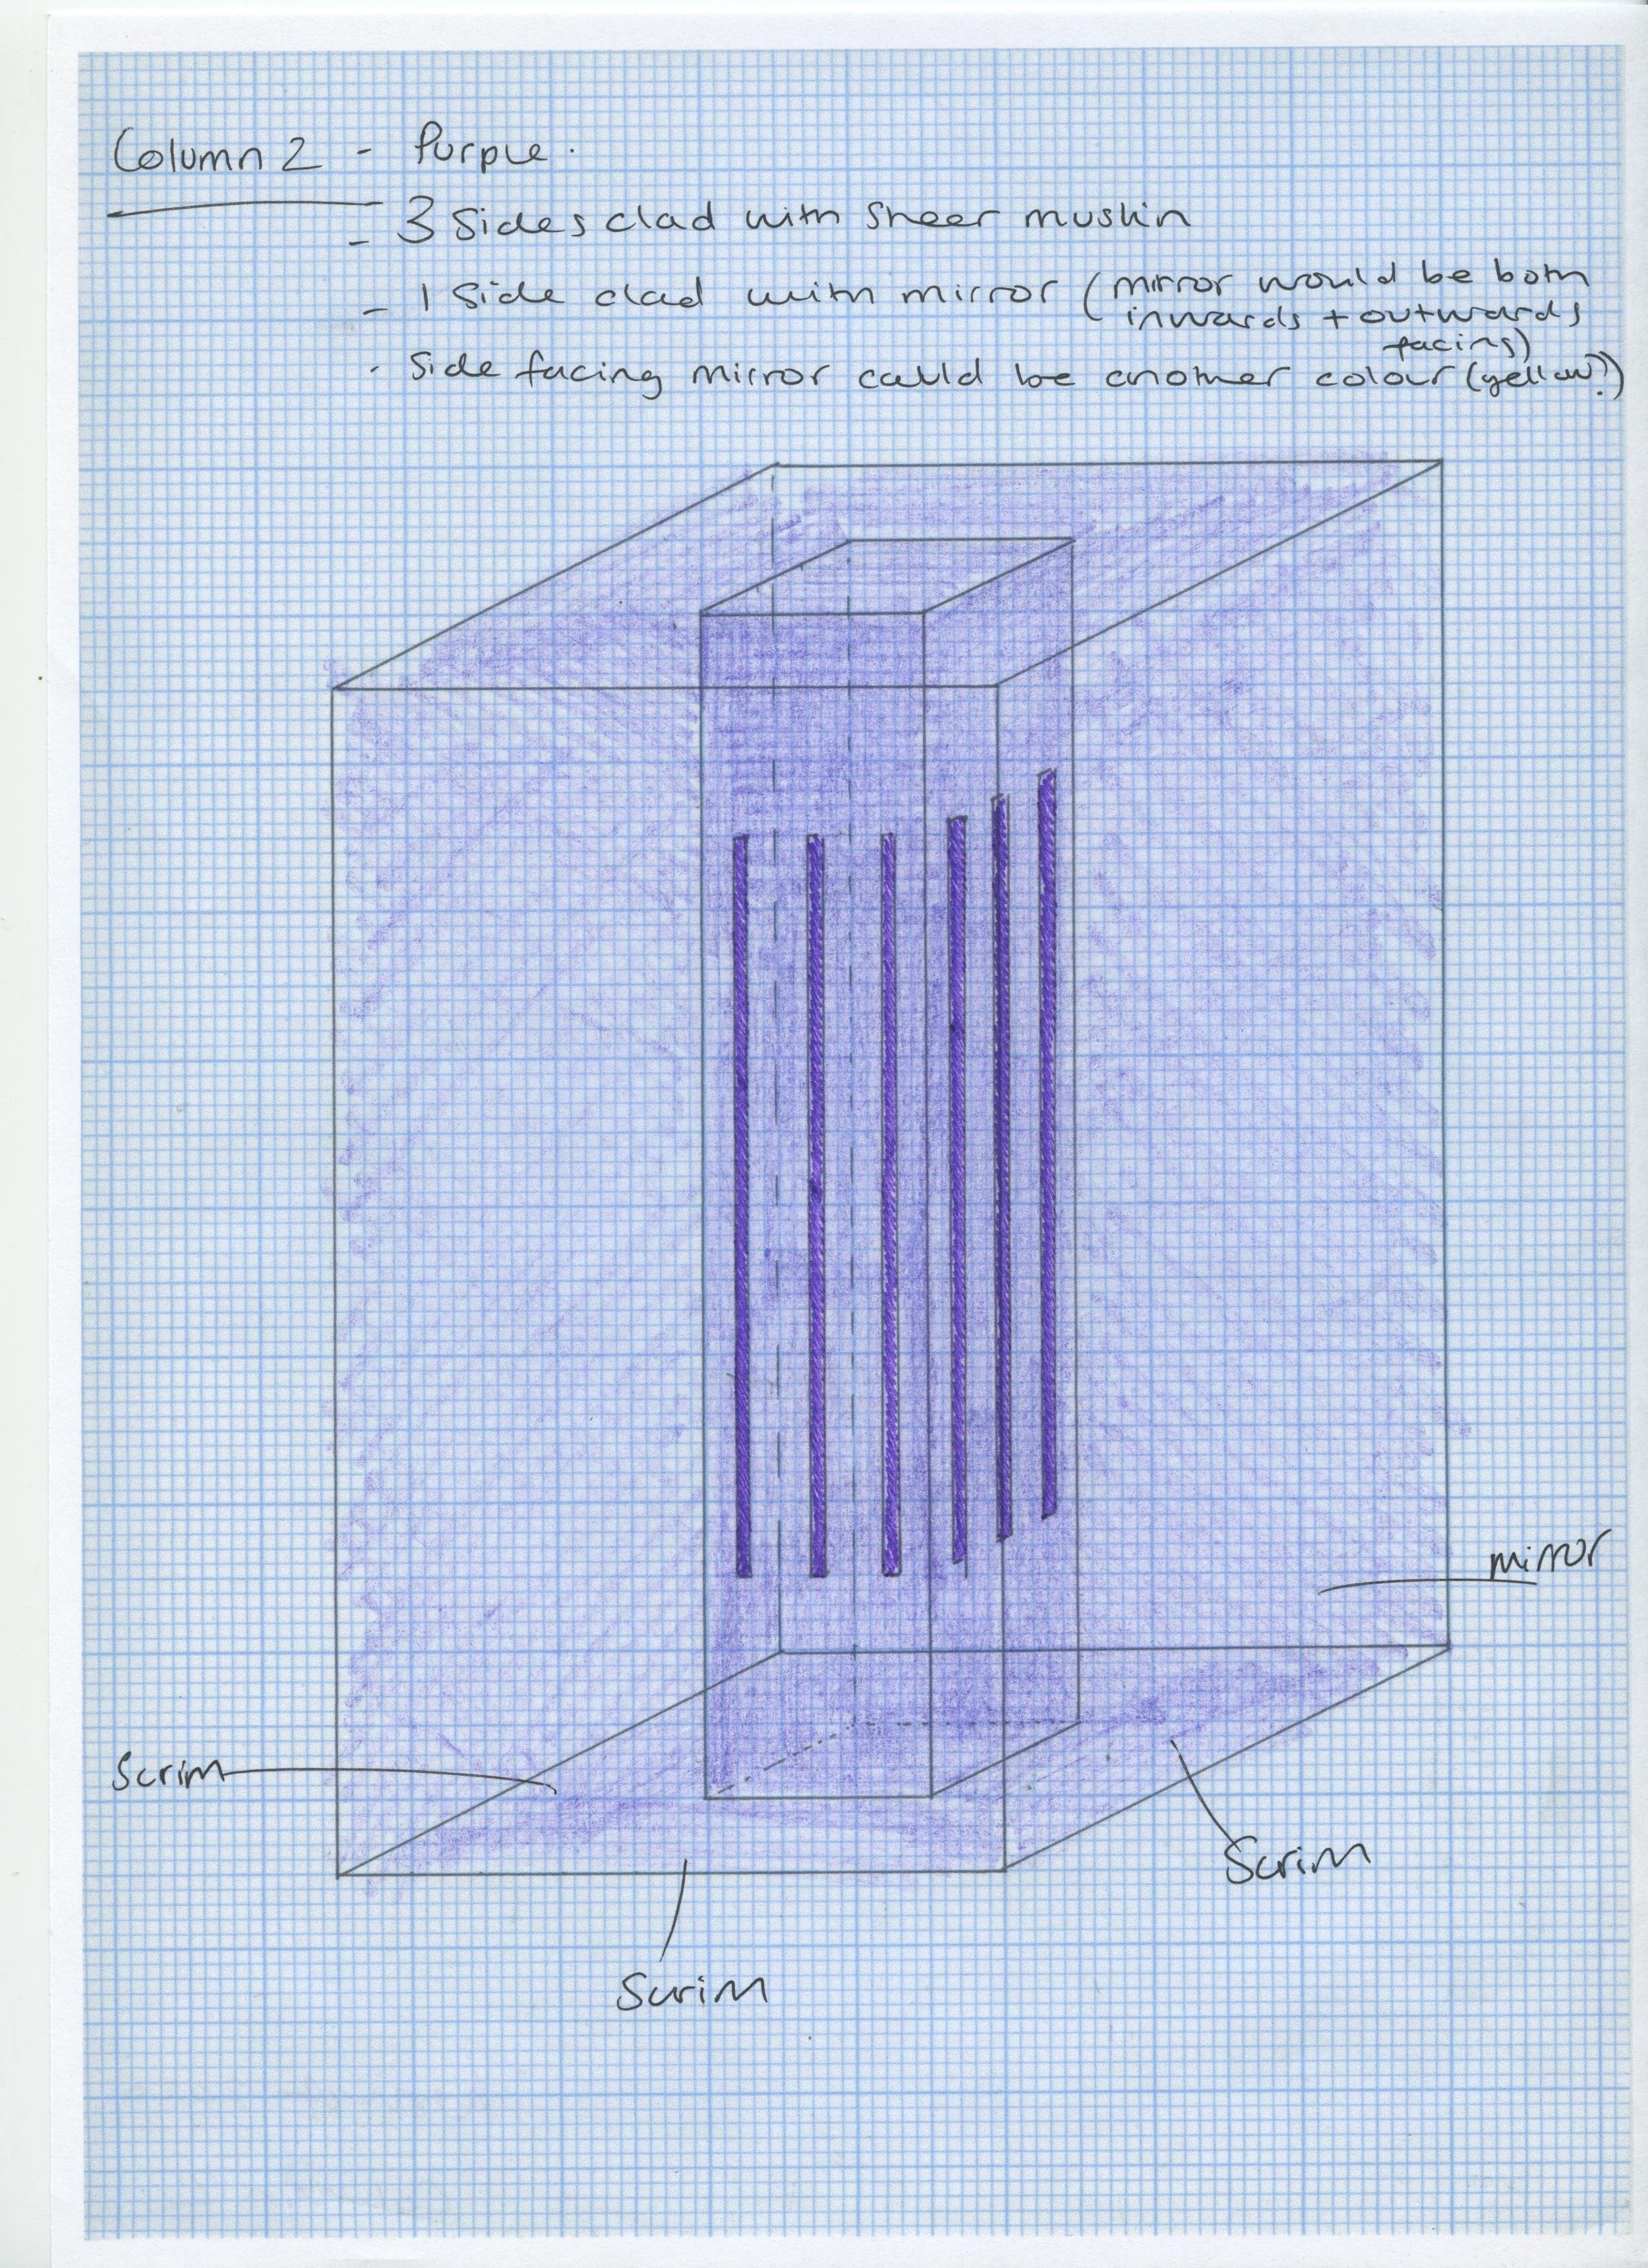 Column 2 - Purple.
- 3 Sides clad with sheer muslin
- 1 side clad with mirror (mirror would be both
inwards + outwards
facing)
- Side facing mirror could be another colour (yellow?)
mirror
Scrim
Scrim
Scrim